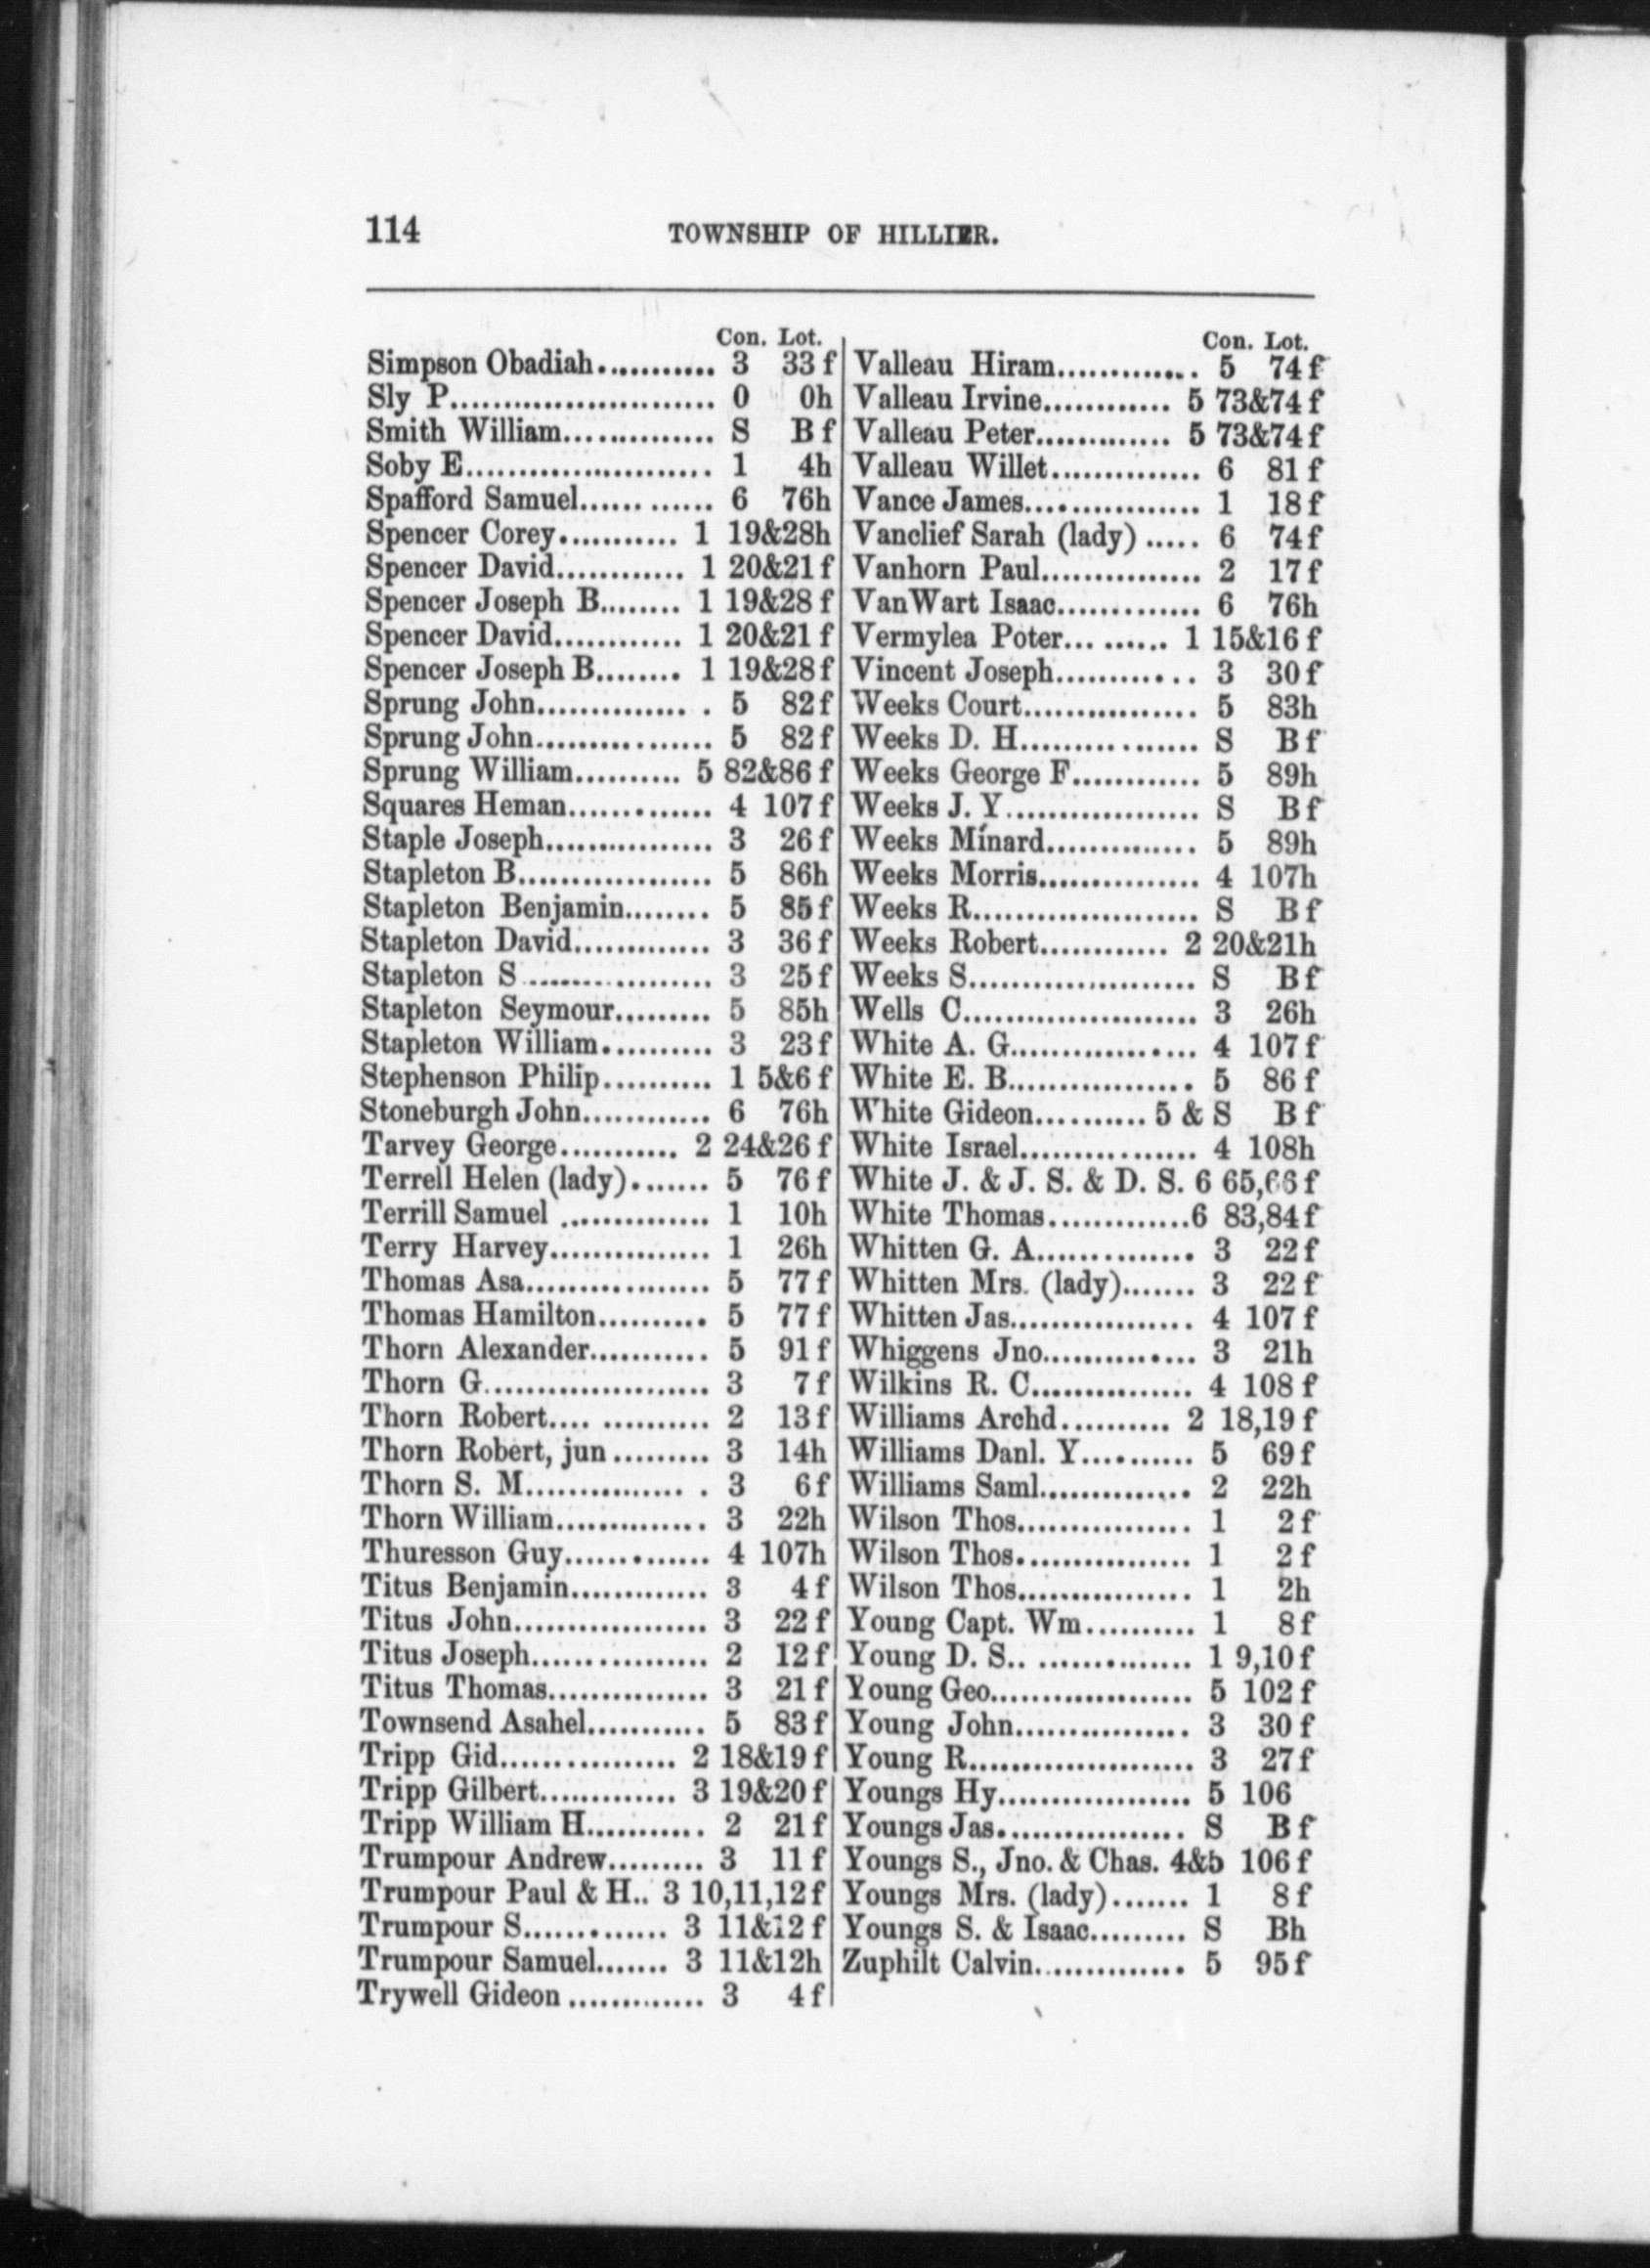 114 TOWNSHIP OF HILLIER.
Con. Lot.
Simpson Obadiah........... 3 33 f
Sly P......................... 0 0h
Smith William.............. S B f
Soby E....................... 1 4h
Spafford Samuel...... ...... 6 76h
Spencer Corey........... 1 19&28h
Spencer David............ 1 20&21 f
Spencer Joseph B........ 1 19&28 f
Spencer David............ 1 20&21 f
Spencer Joseph B........ 1 19&28 f
Sprung John.............. . 5 82 f
Sprung John................. 5 82 f
Sprung William.......... 5 82&86 f
Squares Heman.............. 4 107 f
Staple Joseph................ 3 26 f
Stapleton B.................. 5 86h
Stapleton Benjamin........ 5 85 f
Stapleton David............. 3 36 f
Stapleton S .................. 3 25 f
Stapleton Seymour......... 5 85h
Stapleton William........... 3 23 f
Stephenson Philip.......... 1 5&6 f
Stoneburgh John............ 6 76h
Tarvey George........... 2 24&26 f
Terrell Helen (lady)........ 5 76 f
Terrill Samuel .............. 1 10h
Terry Harvey............... 1 26h
Thomas Asa.................. 5 77 f
Thomas Hamilton........... 5 77 f
Thorn Alexander........... 5 91 f
Thorn G...................... 3 7 f
Thorn Robert.... .......... 2 13 f
Thorn Robert, jun ......... 3 14h
Thorn S. M............... . 3 6 f
Thorn William.............. 3 22h
Thuresson Guy.............. 4 107h
Titus Benjamin............. 3 4 f
Titus John.................. 3 22 f
Titus Joseph................. 2 12 f
Titus Thomas............... 3 21 f
Townsend Asahel........... 5 83 f
Tripp Gid................. 2 18&19 f
Tripp Gilbert............. 3 19&20 f
Tripp William H........... 2 21 f
Trumpour Andrew......... 3 11 f
Trumpour Paul & H.. 3 10,11,12 f
Trumpour S............. 3 11&12 f
Trumpour Samuel....... 3 11&12h
Trywell Gideon ............. 3 4 f
Con. Lot.
Valleau Hiram............. 5 74 f
Valleau Irvine............ 5 73&74 f
Valleau Peter............. 5 73&74 f
Valleau Willet.............. 6 81 f
Vance James................. 1 18 f
Vanclief Sarah (lady) ..... 6 74 f
Vanhorn Paul............... 2 17 f
VanWart Isaac............. 6 76h
Vermylea Poter... ...... 1 15&16 f
Vincent Joseph............ 3 30 f
Weeks Court................ 5 83h
Weeks D. H................. S B f
Weeks George F............ 5 89h
Weeks J. Y.................. S B f
Weeks Minard.............. 5 89h
Weeks Morris............... 4 107h
Weeks R..................... S B f
Weeks Robert............ 2 20&21h
Weeks S..................... S B f
Wells C...................... 3 26h
White A. G................. 4 107 f
White E. B.................. 5 86 f
White Gideon.......... 5 & S B f
White Israel................ 4 108h
White J. & J. S. & D. S. 6 65,66 f
White Thomas.............6 83,84 f
Whitten G. A............... 3 22 f
Whitten Mrs. (lady)....... 3 22 f
Whitten Jas................. 4 107 f
Whiggens Jno.............. 3 21h
Wilkins R. C............... 4 108 f
Williams Archd.......... 2 18,19 f
Williams Danl. Y.......... 5 69 f
Williams Saml.............. 2 22h
Wilson Thos................ 1 2 f
Wilson Thos................ 1 2 f
Wilson Thos................ 1 2h
Young Capt. Wm.......... 1 8 f
Young D. S.. .............. 1 9,10 f
Young Geo................... 5 102 f
Young John................ 3 30 f
Young R..................... 3 27 f
Youngs Hy.................. 5 106
Youngs Jas.................. S B f
Youngs S., Jno. & Chas. 4&5 106 f
Youngs Mrs. (lady)....... 1 8 f
Youngs S. & Isaac......... S Bh
Zuphilt Calvin.............. 5 95 f